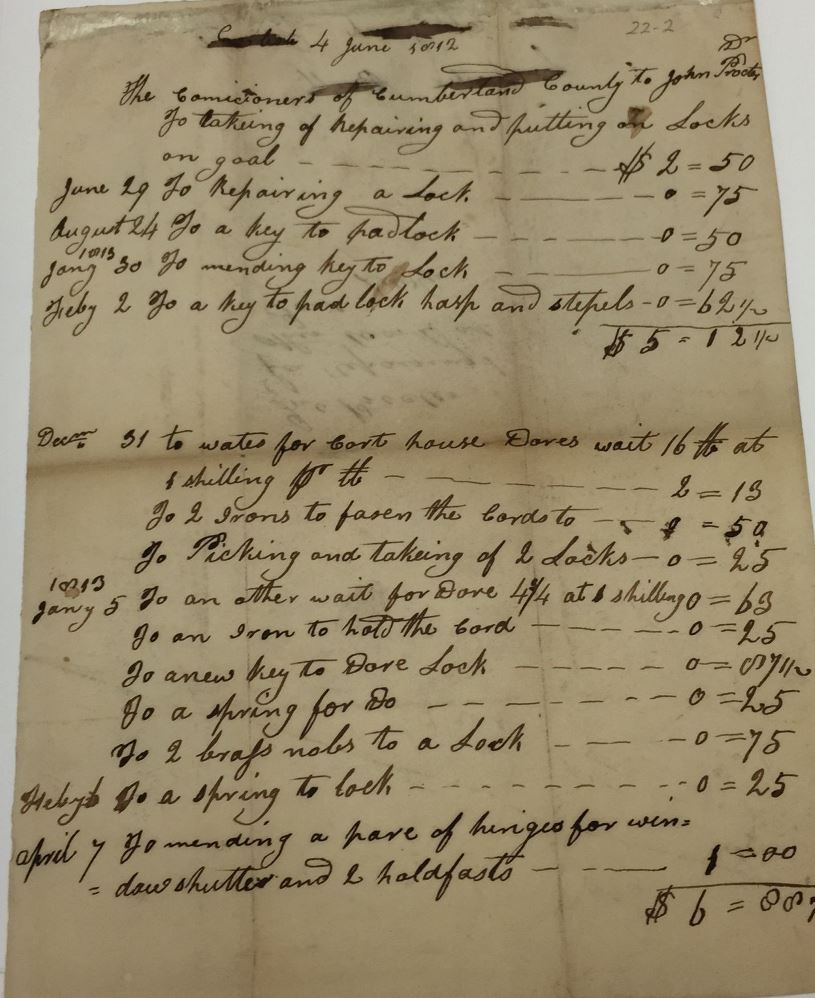 22-2
4 June 1812
Dr
The Comicioners of Cumberland County to John Procter
To takeing of Repairing and putting on Locks
on goal - $ 2=50
June 29 To Repairing a Lock - 0=75
August 24 To a key to padlock - 0=50
1813
Jany 30 To mending key to Lock - 0=75
Feby 2 To a key to pad lock hasp and stepels - 0=62 1/2
$ 5=12 1/2
Decm 31 to wates for Cort house Dores wait 16 lb at
1 shilling pr lb - 2=13
To 2 Irons to fasen the Cords to - =50
To Picking and takeing of 2 Locks - 0=25
1813
Jany 5 To an other wait for Dore 4 3/4 at 1 shilling 0=63
To an Iron to hold the Cord - 0=25
To a new key to Dore Lock - 0=87 1/2
To a spring for Do - 0=25
To 2 brass nobs to a Lock - 0=75
Feby 6 To a spring to lock - 0=25
April 7 To mending a pare of hinges for win=
=dow shutter and 2 holdfasts - 1=00
$ 6=88